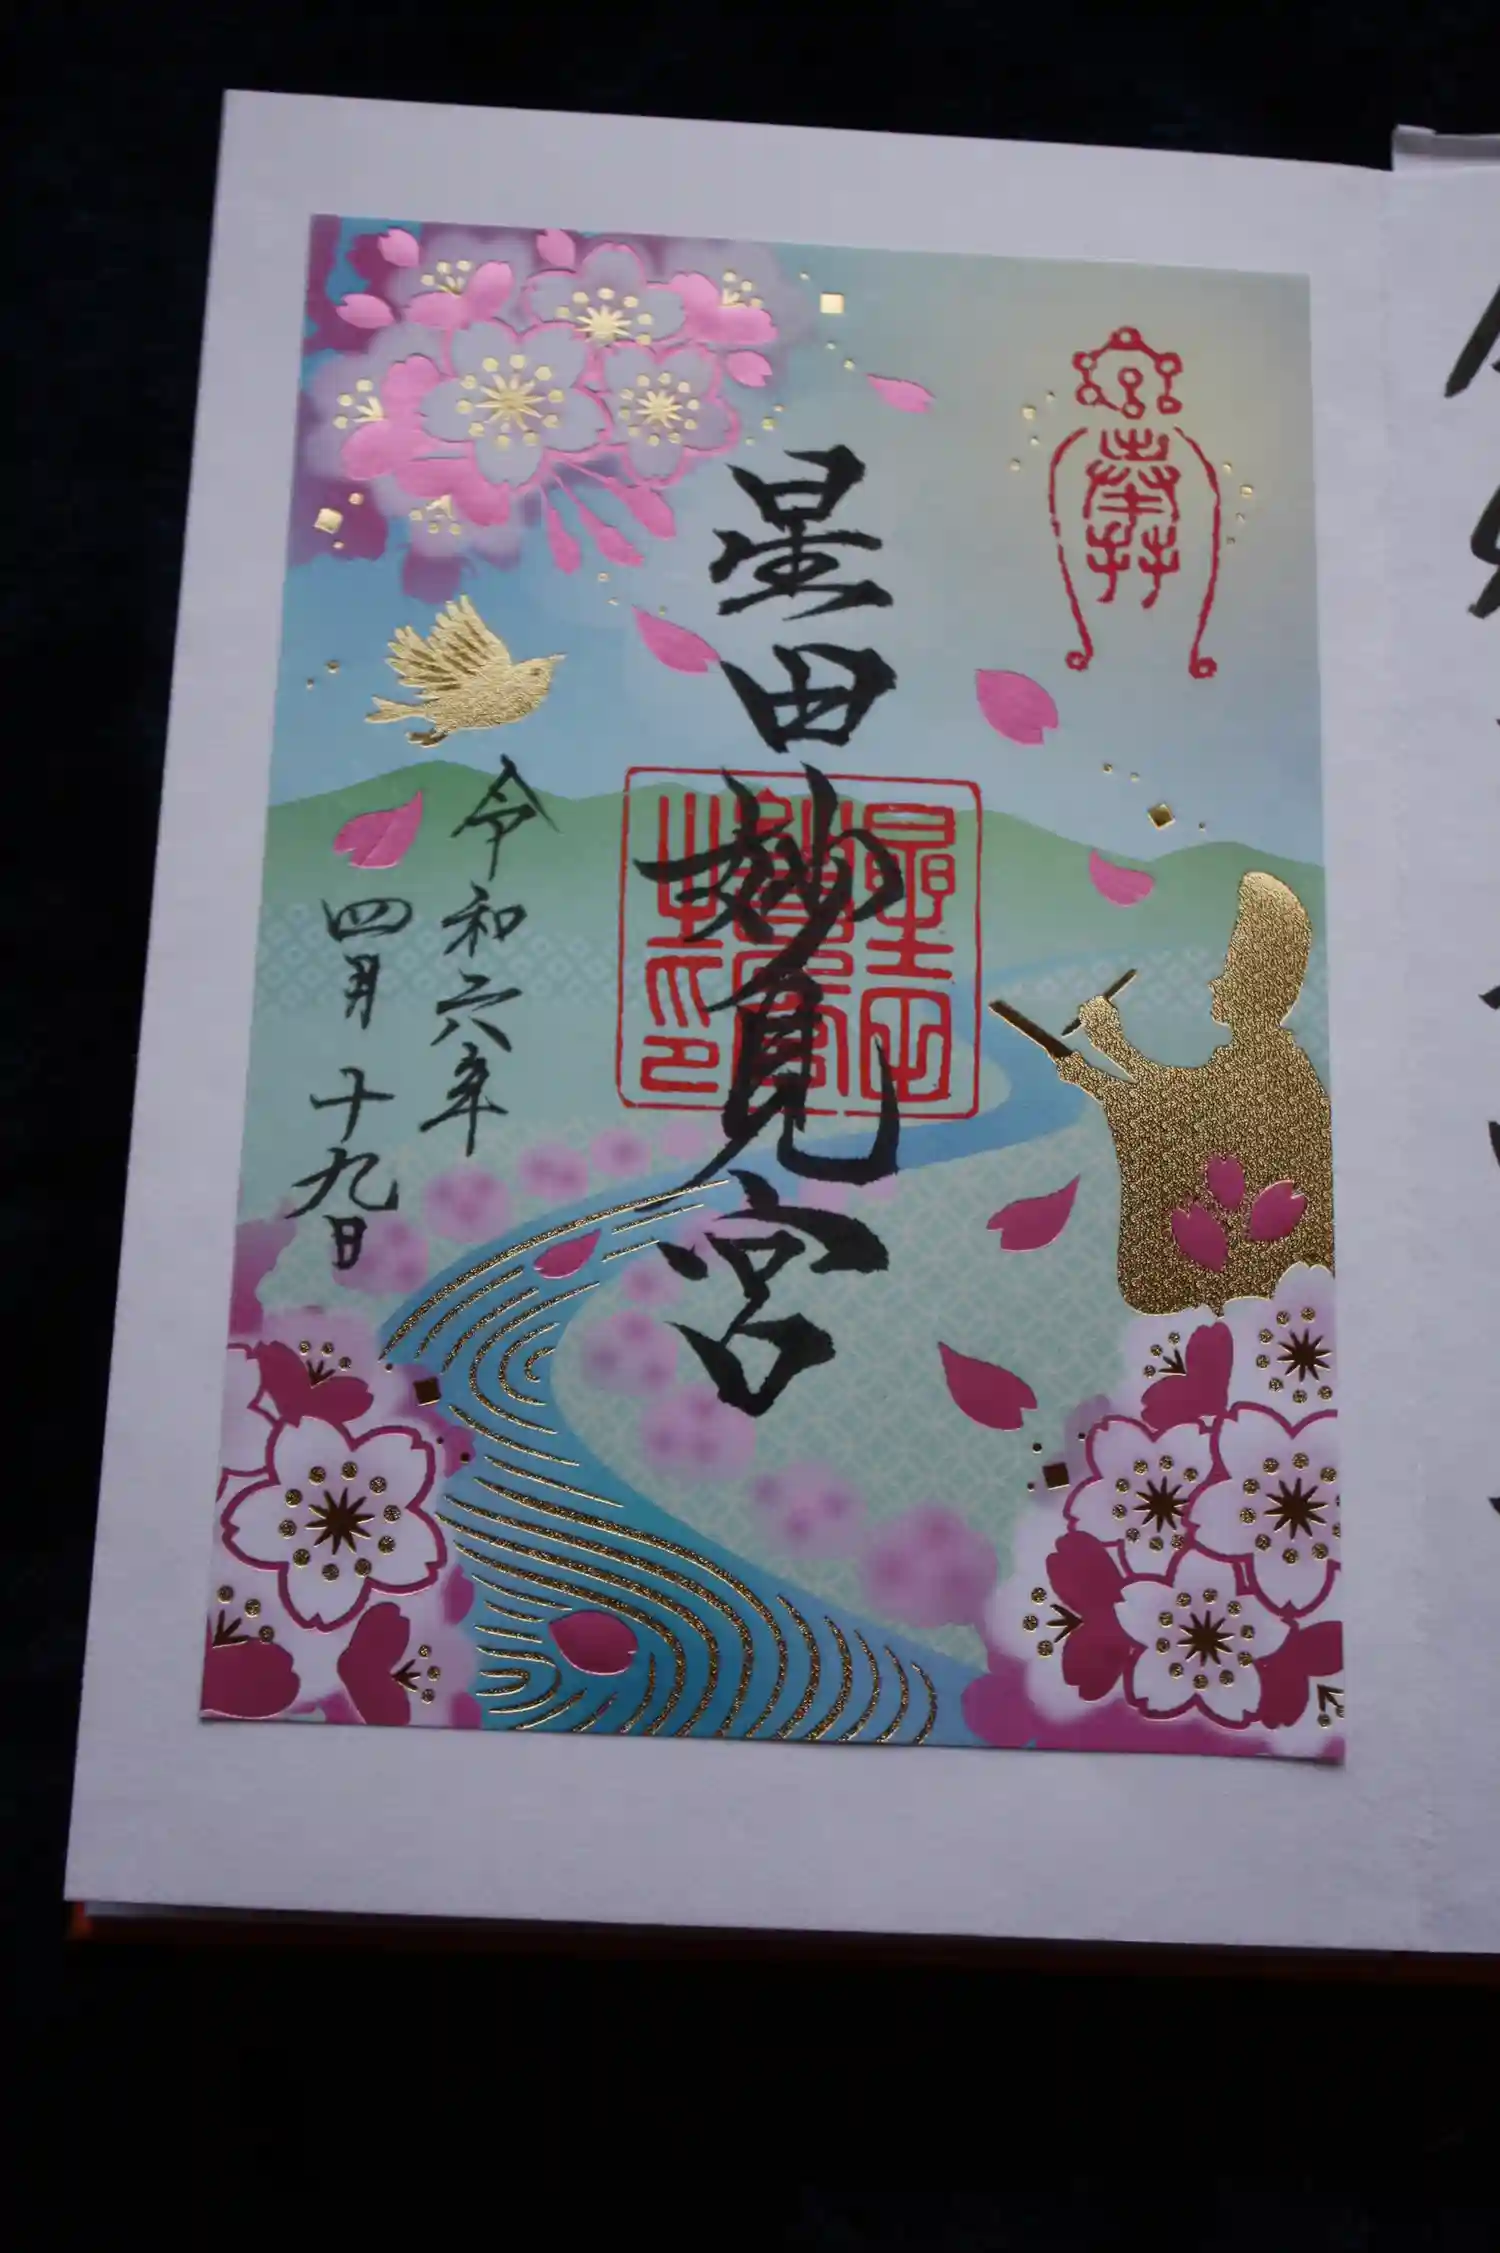 星田妙見宮
令和六年
四月十九日
星田
妙見宮
之印